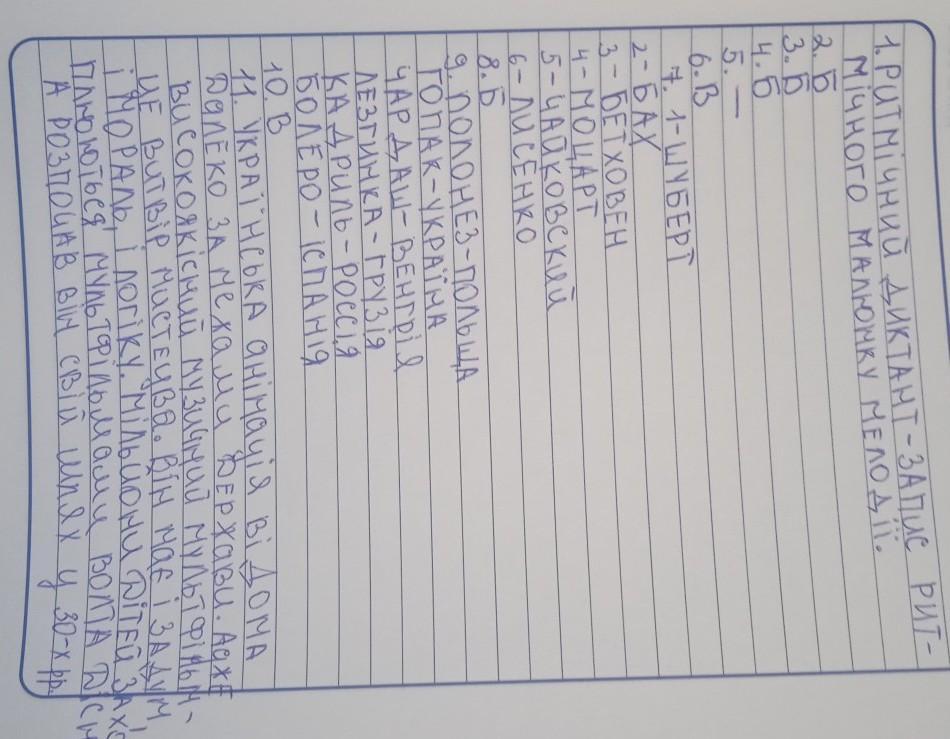 1. РИТМІЧНИЙ ДИКТАНТ-ЗАПИС РИТ-
МІЧНОГО МАЛЮНКУ МЕЛОДІЇ.
2. Б
3. Б
4. Б
5. —
6. В
7. 1-ШУБЕРТ
2-БАХ
3-БЕТХОВЕН
4-МОЦАРТ
5-ЧАЙКОВСКИЙ
6-ЛИСЕНКО
8. Б
9. ПОЛОНЕЗ-ПОЛЬЩА
ГОПАК-УКРАЇНА
ЧАРДАШ-ВЕНГРІЯ
ЛЕЗГИНКА-ГРУЗІЯ
КАДРИЛЬ-РОССІЯ
БОЛЕРО-ІСПАНІЯ
10. В
11. Українська анімація відома
далеко за межами держави. Адже
високоякісний музичний мультфільм-
це витвір мистецтва. Він має і задум,
і мораль, і логіку. Мільйони дітей
мультфільмами Волта
А розпочав він свій шлях у 30-х рр.